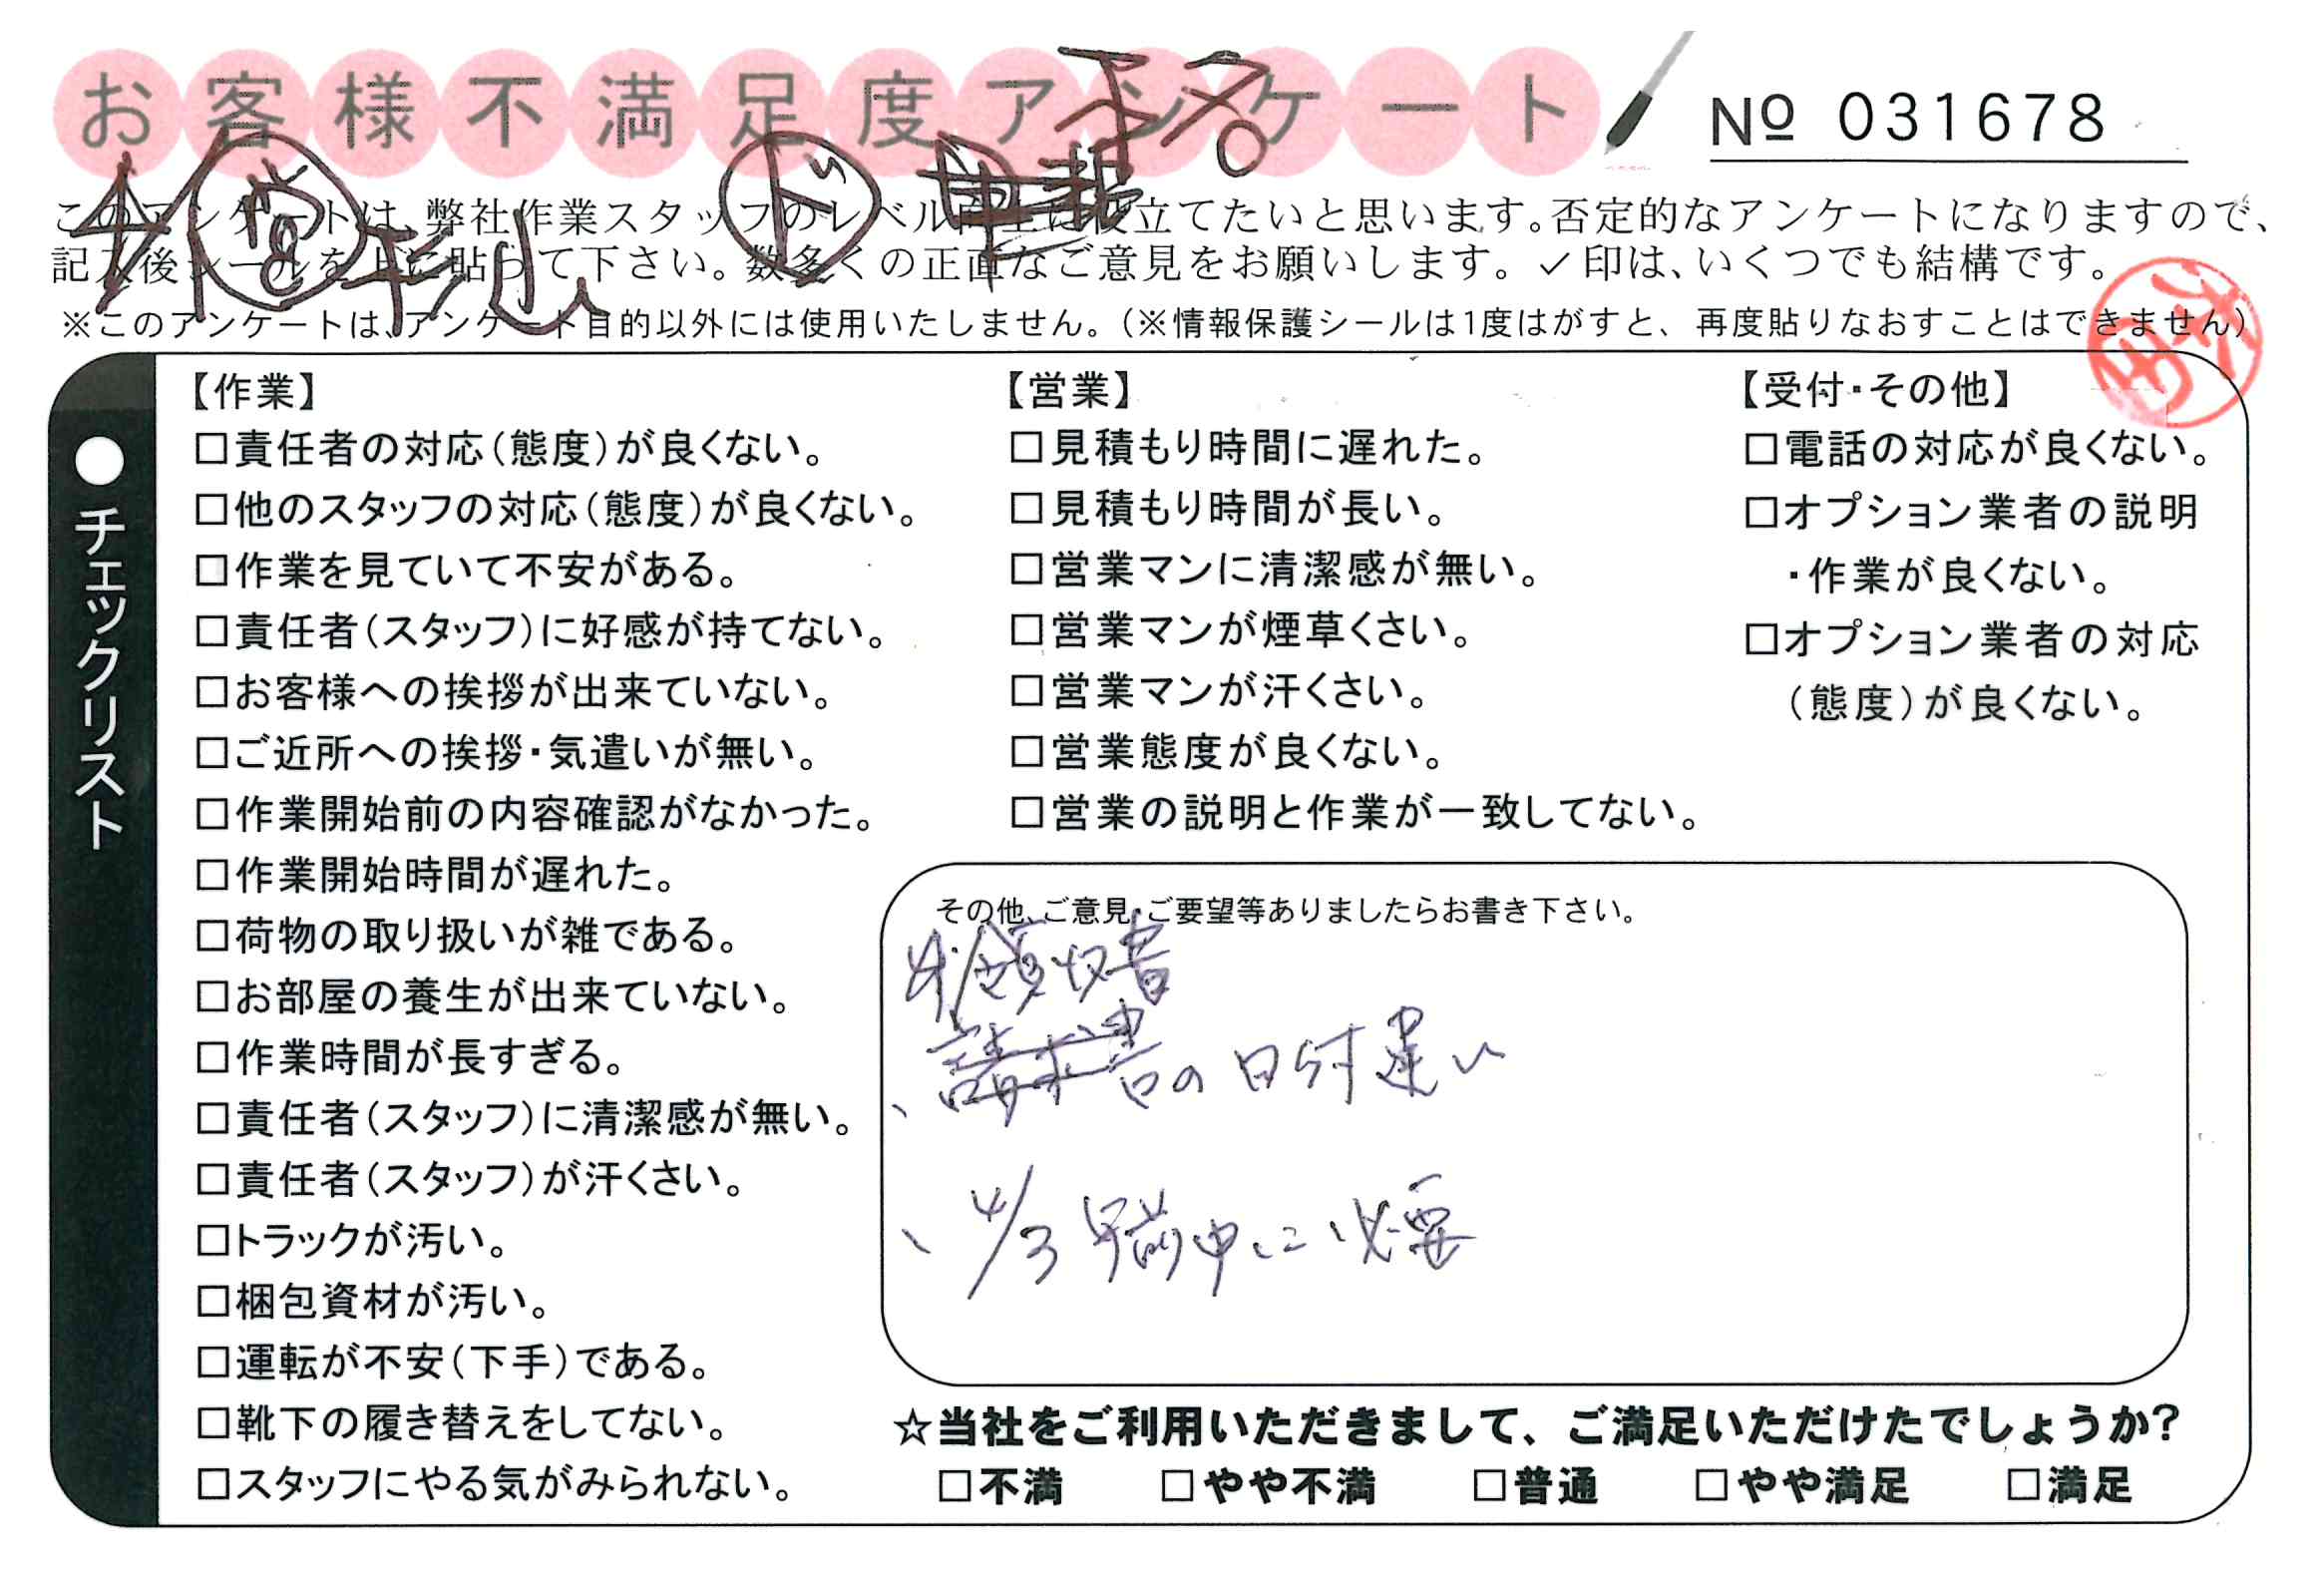 お客様不満足度アンケート
№ 031678
このアンケートは、弊社作業スタッフのレベル向上に役立てたいと思います。否定的なアンケートになりますので、
記入後シールを上に貼って下さい。数多くの正直なご意見をお願いします。✓印は、いくつでも結構です。
※このアンケートは、アンケート目的以外には使用いたしません。(※情報保護シールは1度はがすと、再度貼りなおすことはできません)
●チェックリスト
【作業】
□責任者の対応(態度)が良くない。
□他のスタッフの対応(態度)が良くない。
□作業を見ていて不安がある。
□責任者(スタッフ)に好感が持てない。
□お客様への挨拶が出来ていない。
□ご近所への挨拶・気遣いが無い。
□作業開始前の内容確認がなかった。
□作業開始時間が遅れた。
□荷物の取り扱いが雑である。
□お部屋の養生が出来ていない。
□作業時間が長すぎる。
□責任者(スタッフ)に清潔感が無い。
□責任者(スタッフ)が汗くさい。
□トラックが汚い。
□梱包資材が汚い。
□運転が不安(下手)である。
□靴下の履き替えをしてない。
□スタッフにやる気がみられない。
【営業】
□見積もり時間に遅れた。
□見積もり時間が長い。
□営業マンに清潔感が無い。
□営業マンが煙草くさい。
□営業マンが汗くさい。
□営業態度が良くない。
□営業の説明と作業が一致してない。
【受付・その他】
□電話の対応が良くない。
□オプション業者の説明
・作業が良くない。
□オプション業者の対応
(態度)が良くない。
その他、ご意見・ご要望等ありましたらお書き下さい。
領収書
、請求書の日付違い
、4/3 午前中に必要
☆当社をご利用いただきまして、ご満足いただけたでしょうか?
□不満 □やや不満 □普通 □やや満足 □満足